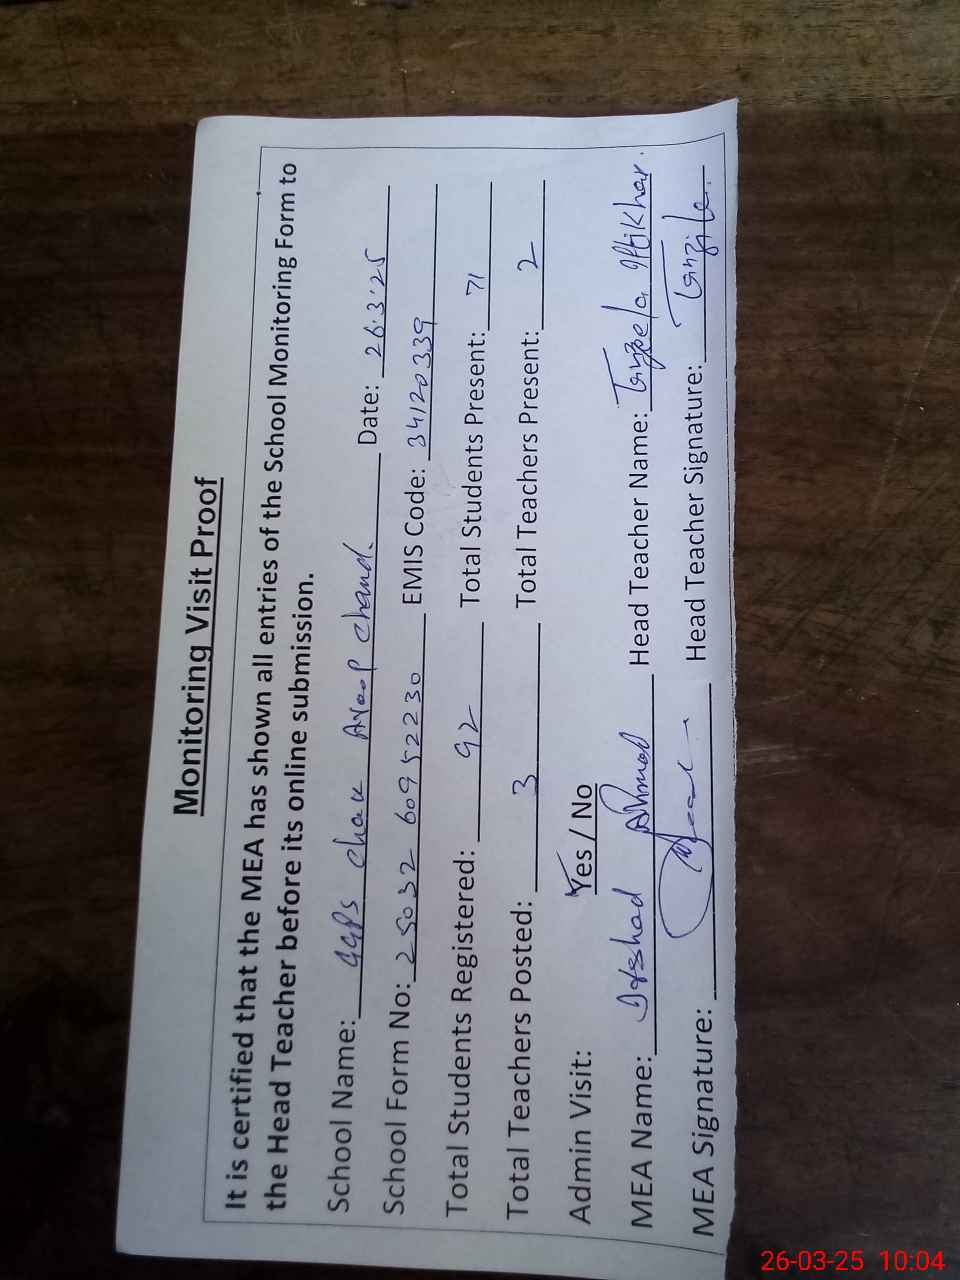 Monitoring Visit Proof
It is certified that the MEA has shown all entries of the School Monitoring Form to
the Head Teacher before its online submission.
School Name: GGPS Chak Ayoop Chand. Date: 26.3.25
School Form No: 25032 60952230 EMIS Code: 34120339
Total Students Registered: 92 Total Students Present: 71
Total Teachers Posted: 3 Total Teachers Present: 2
Admin Visit: Yes / No
MEA Name: Irshad Ahmad Head Teacher Name: Tanzeela Iftikhar.
MEA Signature: Head Teacher Signature: Tanzila
26-03-25 10:04